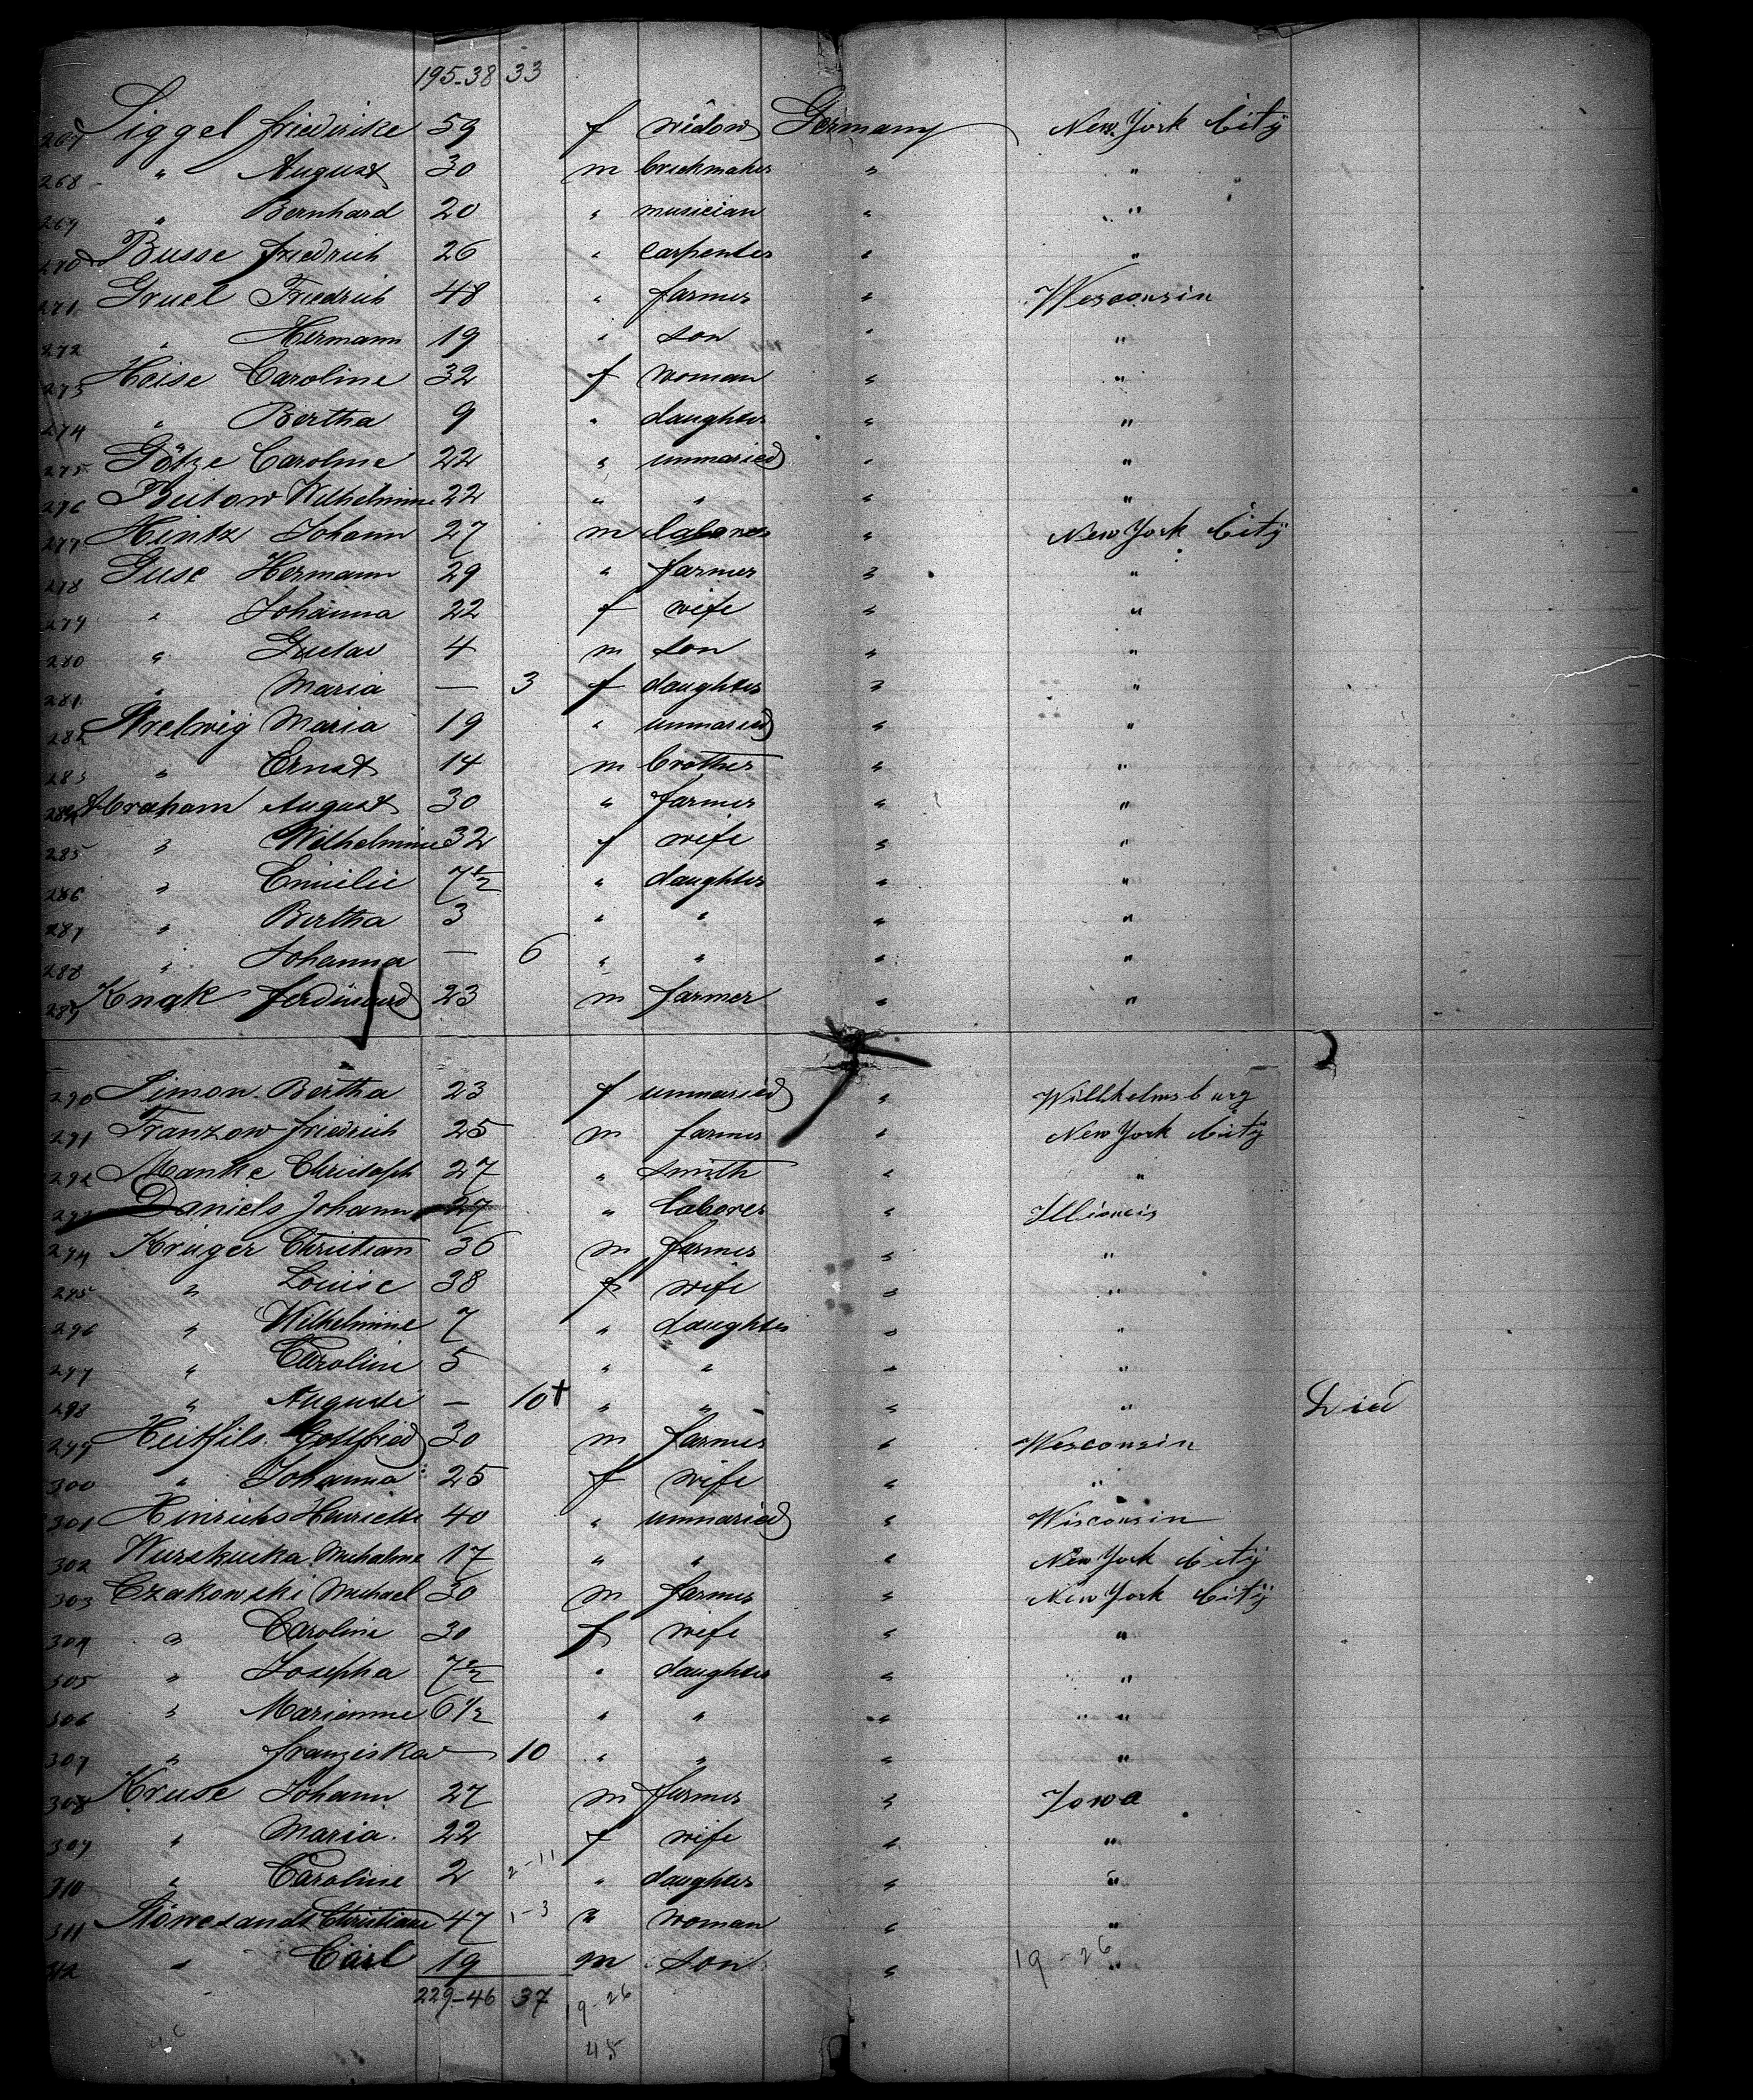 195-38 33
267 Siggel Friedricke 59 f widow Germany New York City
268 " August 30 m brickmaker " "
269 " Bernhard 20 " musician " "
270 Busse Friedrich 26 " carpenter " "
271 Gruel Friedrich 48 " farmer " Wesconsin
272 " Hermann 19 " son " "
273 Heise Caroline 32 f woman " "
274 " Bertha 9 " daughter " "
275 Götze Caroline 22 " unmaried " "
276 Butow Wilhelmine 22 " " " "
277 Hintz Johann 27 m laborer " New York City
278 Guse Hermann 29 " farmer " "
279 " Johanna 22 f wife " "
280 " Gustav 4 m son " "
281 " Maria — 3 f daughter " "
282 Strelwig Maria 19 " unmaried " "
283 " Ernst 14 m brother " "
284 Abraham August 30 " farmer " "
285 " Wilhelmine 32 f wife " "
286 " Emilie 7½ " daughter " "
287 " Bertha 3 " " " "
288 " Johanna — 6 " " " "
289 Knak Ferdinand 23 m farmer " "
290 Simon Bertha 23 f unmaried " Willhelmsburg
291 Franzow Friedrich 25 m farmer " New York City
292 Manke Christoph 27 " smith " "
293 Daniels Johann 27 " laborer " Illinois
294 Krüger Christian 36 m farmer " "
295 " Louise 38 f wife " "
296 " Wilhelmine 7 " daughter " "
297 " Caroline 5 " " " "
298 " Auguste — 10+ " " " " Died
299 Gottfried 30 m farmer " Wesconsin
300 " Johanna 25 f wife " "
301 Hinrichs Henriette 40 " unmaried " Wisconsin
302 17 " " " New York City
303 Czakowski Michael 30 m farmer " New York City
304 " Caroline 30 f wife " "
305 " Josepha 7½ " daughter " "
306 " Marianne 6½ " " " " "
307 " Franziska — 10 " " " "
308 Kruse Johann 27 m farmer " Iowa
309 " Maria 22 f wife " "
310 " Caroline 2 2-11 " daughter " "
311 Christiane 47 1-3 " woman " "
312 " Carl 19 m son " 19-26 "
229-46 37 19-26
45